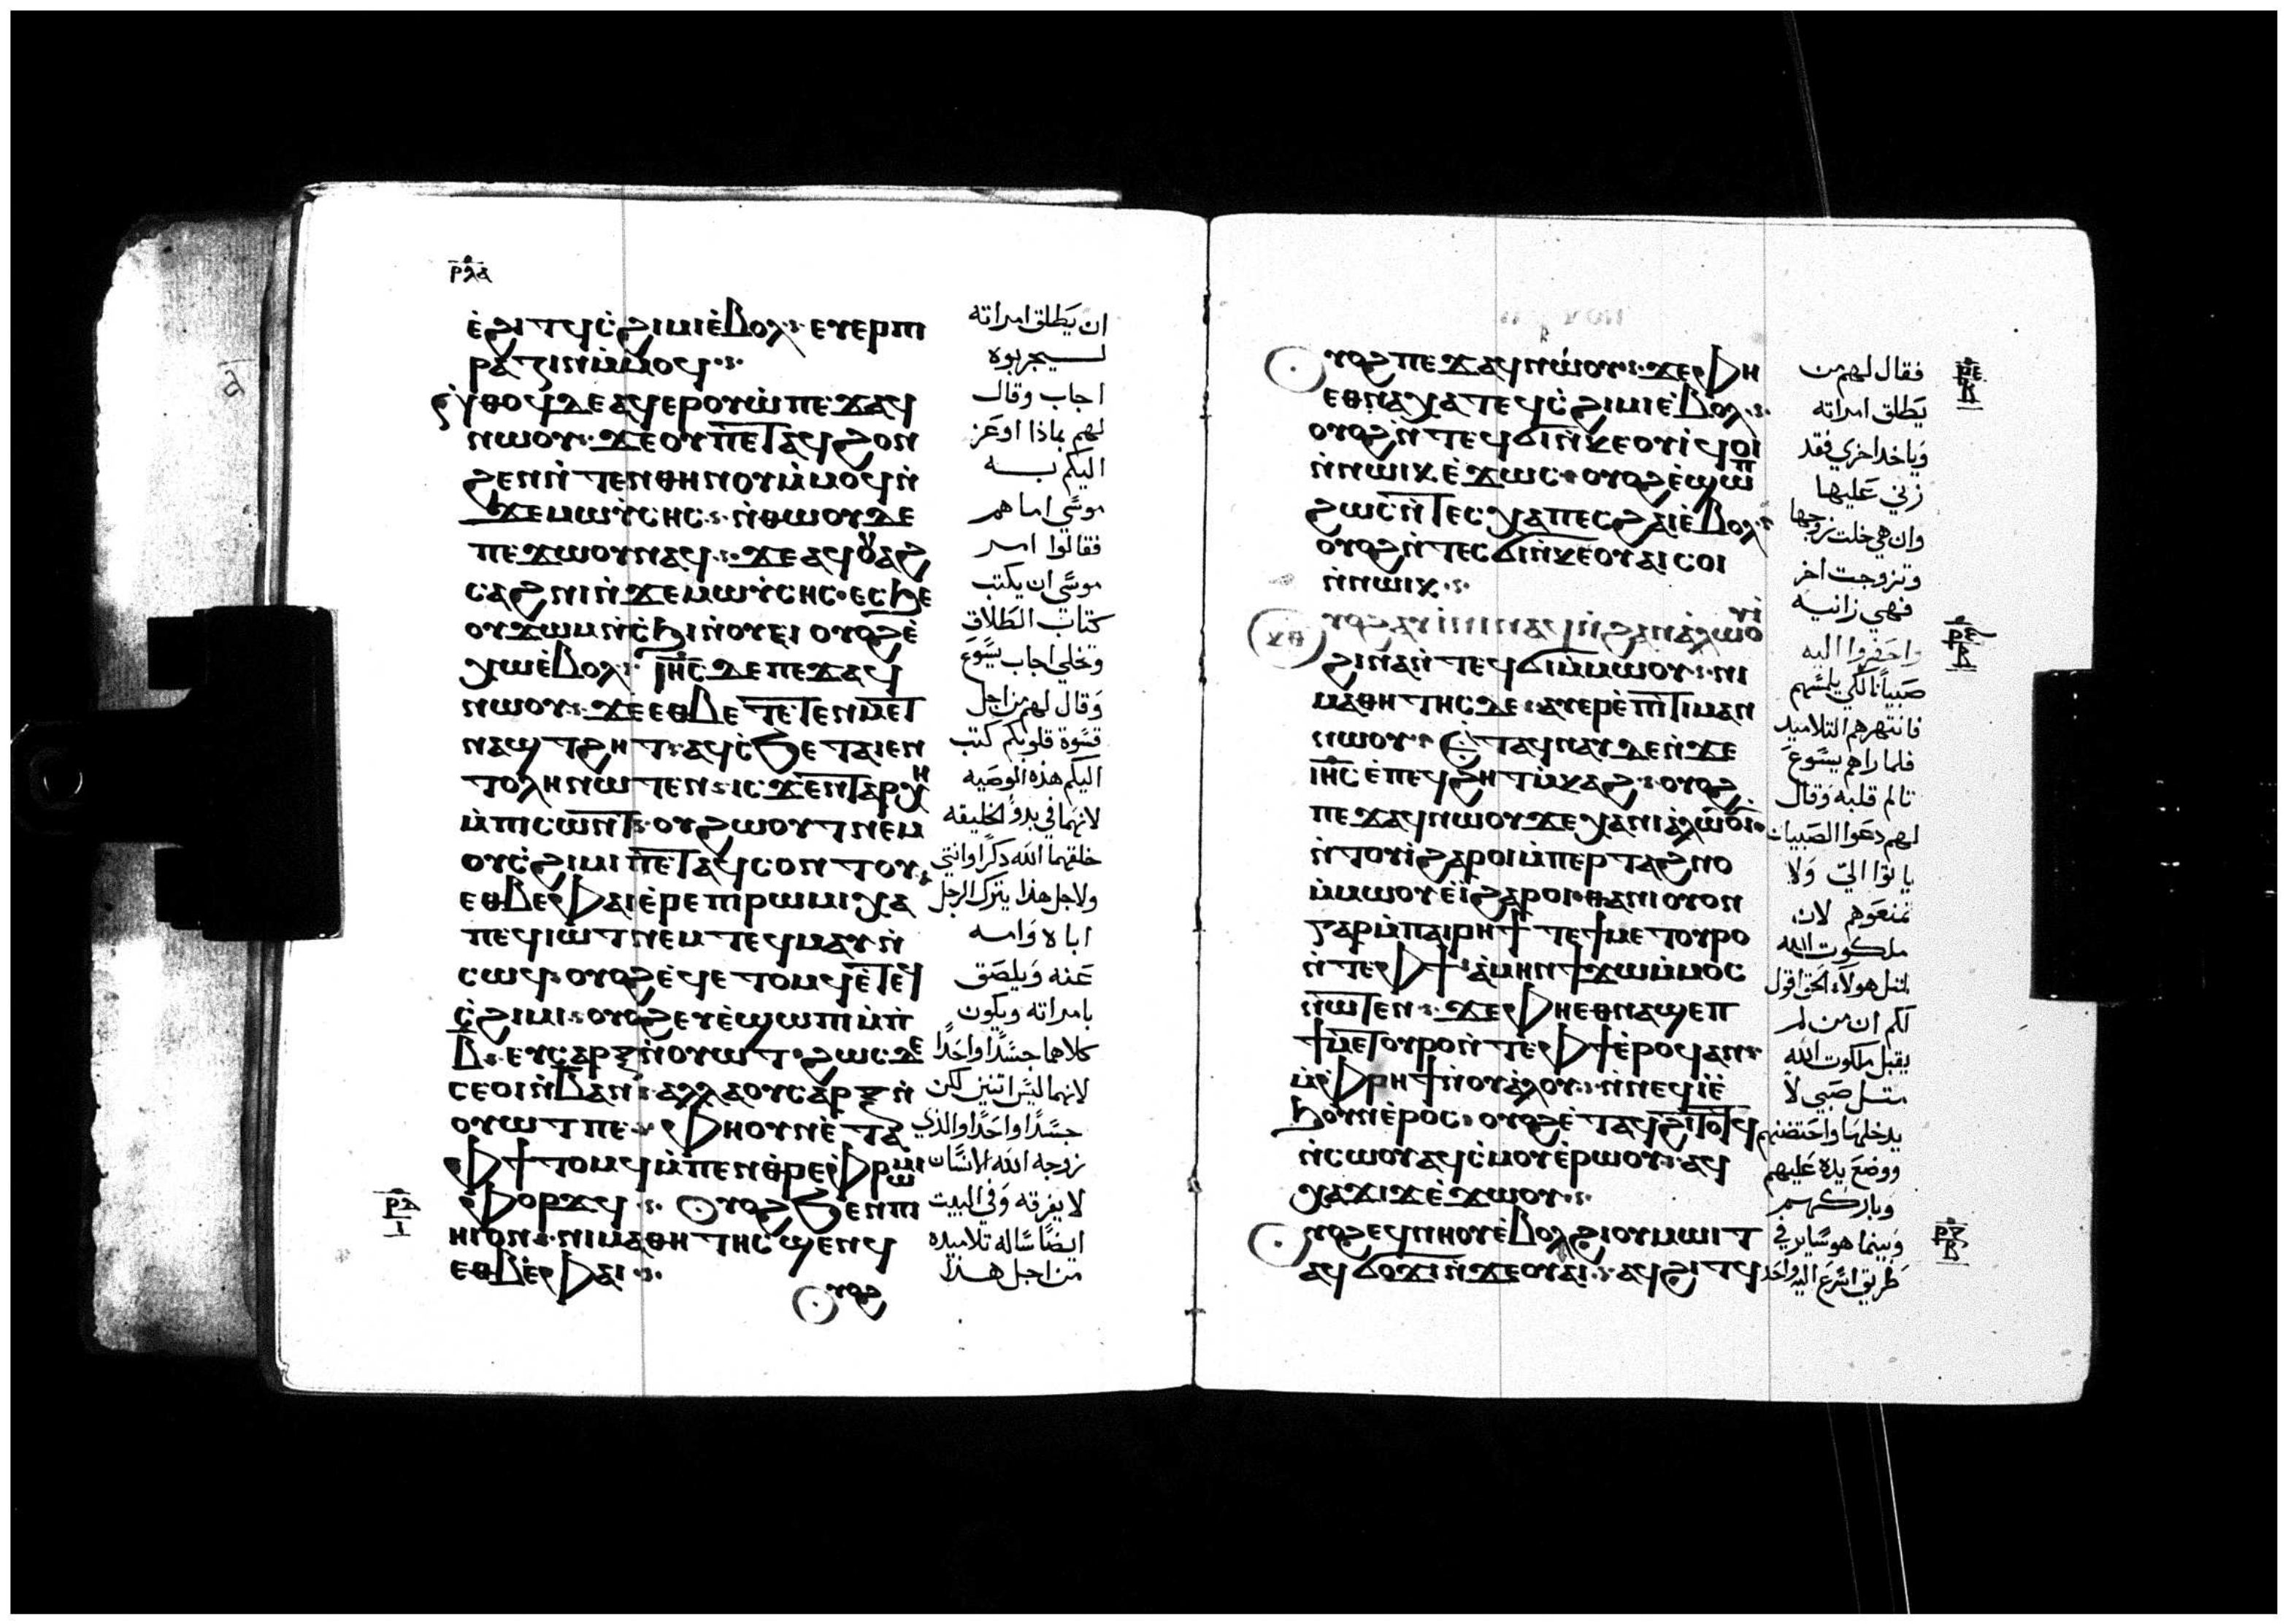 ⲣⲗⲁ
ⲉ̀ϩⲓⲧϥⲥ̀ϩⲓⲙⲓⲉ̀ⲃⲟⲗ: ⲉⲩⲉⲣⲡⲓ
ⲣⲁⲍⲓⲛⲙ̀ⲙⲟϥ:
ⲛ̀ⲑⲟϥⲇⲉⲁϥⲉⲣⲟⲩⲱ̀ⲡⲉϫⲁϥ
ⲛⲱⲟⲩ: ϫⲉⲟⲩⲡⲉⲧⲁϥϩⲟⲛ
ϩⲉⲛⲛ̀ⲧⲉⲛⲑⲏⲛⲟⲩⲙ̀ⲙⲟϥⲛ̀
ϫⲉⲙⲱⲩ̀ⲥⲏⲥ: ⲛ̀ⲑⲱⲟⲩⲇⲉ
ⲡⲉϫⲱⲟⲩⲛⲁϥ: ϫⲉⲁϥⲟⲩⲁϩ
ⲥⲁϩⲛⲓⲛ̀ϫⲉⲙⲱⲩ̀ⲥⲏⲥ· ⲉⲥϧⲉ
ⲟⲩϫⲱⲙⲛ̀ⲥ̀ϧⲓⲛ̀ⲟⲩⲉⲓ ⲟⲩⲟϩⲉ̀
ⲭⲱⲉ̀ⲃⲟⲗ: ⲓⲏⲥ ⲇⲉⲡⲉϫⲁϥ
ⲛⲱⲟⲩ: ϫⲉⲉⲑⲃⲉⲧⲉⲧⲉⲛⲙⲉⲧ
ⲛⲁϣⲧϩⲏⲧ: ⲁϥⲥ̀ϧⲉⲧⲁⲓⲉⲛ
ⲧⲟⲗⲏⲛⲱⲧⲉⲛ: ⲓⲥϫⲉⲛⲧⲁⲣⲭⲏ
ⲙ̀ⲡⲓⲥⲱⲛⲧ: ⲟⲩϩⲱⲟⲩⲧⲛⲉⲙ
ⲟⲩⲥ̀ϩⲓⲙⲓⲡⲉⲧⲁϥⲥⲟⲛⲧⲟⲩ:
ⲉⲑⲃⲉⲫⲁⲓⲉ̀ⲣⲉⲡⲓⲣⲱⲙⲓⲭⲁ
ⲡⲉϥⲓⲱⲧⲛⲉⲙⲧⲉϥⲙⲁⲩⲛ̀
ⲥⲱϥ: ⲟⲩⲟϩⲉ̀ϥⲉⲧⲟⲙϥⲉ̀ⲧⲉϥ
ⲥ̀ϩⲓⲙⲓ: ⲟⲩⲟϩⲉⲩⲉ̀ϣⲱⲡⲓⲙ̀ⲡ
ⲃ: ⲉⲩⲥⲁⲣⲝⲛ̀ⲟⲩⲱⲧ· ϩⲱⲥⲇⲉ
ⲥⲉⲟⲓⲛ̀ⲃⲁⲛ: ⲁⲗⲗⲁⲟⲩⲥⲁⲣⲝⲛ̀
ⲟⲩⲱⲧⲡⲉ: ⲫⲏⲟⲩⲛⲉ̀ⲧⲁ
ⲫϯⲧⲟⲙϥⲙ̀ⲡⲉⲛⲑ̀ⲣⲉⲫⲣⲱⲙⲓ
ⲫⲟⲣϫϥ: ⲟⲩⲟϩϧⲉⲛⲡⲓ
ⲏⲓⲟⲛ: ⲛⲓⲙⲁⲑⲏⲧⲏⲥϣⲉⲛϥ
ⲉⲑⲃⲉ̀ⲫⲁⲓ:
ⲟⲩⲟϩ
ان يَطلق امراته
ليجربوه
اجاب وقال
لهم بماذا اوعَز
اليكم به
موسَي اما هم
فقالوا امر
موسَي ان يكتب
كتاب الطَلاق
وتخلي اجاب يسَوعَ
وَقال لهم من اجل
قسَوة قلوبكم كتب
اليكم هذه الوصَيه
لانهما في بدؤ الخليقه
خلقهما الله دكرًا وانتي
ولاجل هذا يترك الرجل
اباه وَامه
عَنه وَيلصَق
بامراته ويكون
كلاهما جسَدًا واحَدًا
لانهما ليسَ اتنين لكن
جسَدًا واحَدًا والذي
زوجه الله الانسَان
لا يفرقه وَفي البيت
ايضًا سَاله تلاميده
من اجل هدا
ⲟⲩⲟϩⲡⲉϫⲁϥⲛⲱ̀ⲟⲩ: ϫⲉⲫⲏ
ⲉⲑⲛⲁⲭⲁⲧⲉϥⲥ̀ϩⲓⲙⲓⲉ̀ⲃⲟⲗ:
ⲟⲩⲟϩⲛ̀ⲧⲉϥϭⲓⲛ̀ⲕⲉⲟⲩⲓ̀ϥⲟⲓ
ⲛ̀ⲛⲱⲓⲕ ⲉ̀ϫⲱⲥ· ⲟⲩⲟϩⲉ̀ϣⲱⲡ
ϩⲱⲥⲛ̀ⲧⲉⲥⲭⲁⲡⲉⲥϩⲁⲓⲉ̀ⲃⲟⲗ:
ⲟⲩⲟϩⲛ̀ⲧⲉⲥϭⲓⲛ̀ⲕⲉⲟⲩⲁⲓⲥⲟⲓ
ⲛ̀ⲛⲱⲓⲕ:
ⲟⲩⲟϩⲁⲩⲓ̀ⲛⲓⲛⲁϥⲛ̀ϩⲁⲛⲁ̀ⲗⲱⲟⲩⲓ̀
ϩⲓⲛⲁⲛ̀ⲧⲉϥϭⲓⲙ̀ⲙⲱⲟⲩ: ⲛⲓ
ⲙⲁⲑⲏⲧⲏⲥⲇⲉ: ⲁⲩⲉⲣⲉ̀ⲡⲓⲧⲓⲙⲁⲛ
ⲛⲱⲟⲩ: ⲉⲧⲁϥⲛⲁⲩⲇⲉⲛ̀ϫⲉ
ⲓⲏⲥ ⲉ̀ⲡⲉϥϩⲏⲧⲙ̀ⲕⲁϩ: ⲟⲩⲟϩ
ⲡⲉϫⲁϥⲛⲱⲟⲩϫⲉⲭⲁⲛⲓⲁ̀ⲗⲱⲟⲩⲓ̀
ⲛ̀ⲧⲟⲩⲓ̀ϩⲁⲣⲟⲓⲙ̀ⲡⲉⲣⲧⲁϩⲛⲟ
ⲙ̀ⲙⲱⲟⲩⲉⲓ̀ϩⲁⲣⲟⲓ· ⲑⲁⲛⲓⲟⲩⲟⲛ
ⲅⲁⲣⲙ̀ⲡⲁⲓⲣⲏϯ ⲧⲉϯⲙⲉⲧⲟⲩⲣⲟ
ⲛ̀ⲧⲉⲫϯ: ⲁ̀ⲙⲏⲛϯϫⲱⲙ̀ⲙⲟⲥ
ⲛⲱⲧⲉⲛ: ϫⲉⲫⲏⲉⲑⲛⲁϣⲉⲡ
ϯⲙⲉⲧⲟⲩⲣⲟⲛ̀ⲧⲉⲫϯⲉ̀ⲣⲟϥⲁⲛ:
ⲙ̀ⲫⲣⲏϯⲛ̀ⲟⲩⲁ̀ⲗⲟⲩ: ⲛ̀ⲛⲉϥⲓ̀ⲉ̀
ϧⲟⲩⲛⲉ̀ⲣⲟⲥ· ⲟⲩⲟϩⲉ̀ⲧⲁϥϩⲓⲧⲟⲧϥ
ⲛ̀ⲥⲱⲟⲩⲁϥⲥ̀ⲙⲟⲩⲉ̀ⲣⲱⲟⲩ: ⲁϥ
ⲭⲁϫⲓϫⲉ̀ϫⲱⲟⲩ:
ⲟⲩⲟϩⲉϥⲛⲏⲟⲩⲉ̀ⲃⲟⲗϩⲓⲟⲩⲙⲱⲓⲧ
ⲁϥϭⲟϫⲓⲛ̀ϫⲉⲟⲩⲁⲓ: ⲁϥϩⲓⲧϥ
فقال لهم من
يَطلق امراته
وَياخد اخري فقد
زني عَليها
وان هي خلت زوجها
وتزوجت اخر
فهي زانيه
واحَضَروا اليه
صَبيانًا لكي يلمسَهم
فانتهرهم التلاميد
فلما راهم يسَوعَ
تالم قلبه وَقال
لهم دعَوا الصَبيان
ياتوا اليّ وَلا
تمنعَوهم لان
ملكوت الله
لمتل هولاء الحَق اقول
لكم ان من لم
يقبل ملكوت الله
متل صَبي لا
يدخلها واحَتضنهم
ووضعَ يده عَليهم
وَباركهم
وَبينما هو سَاير في
طَريق اسَرعَ اليه واحَد